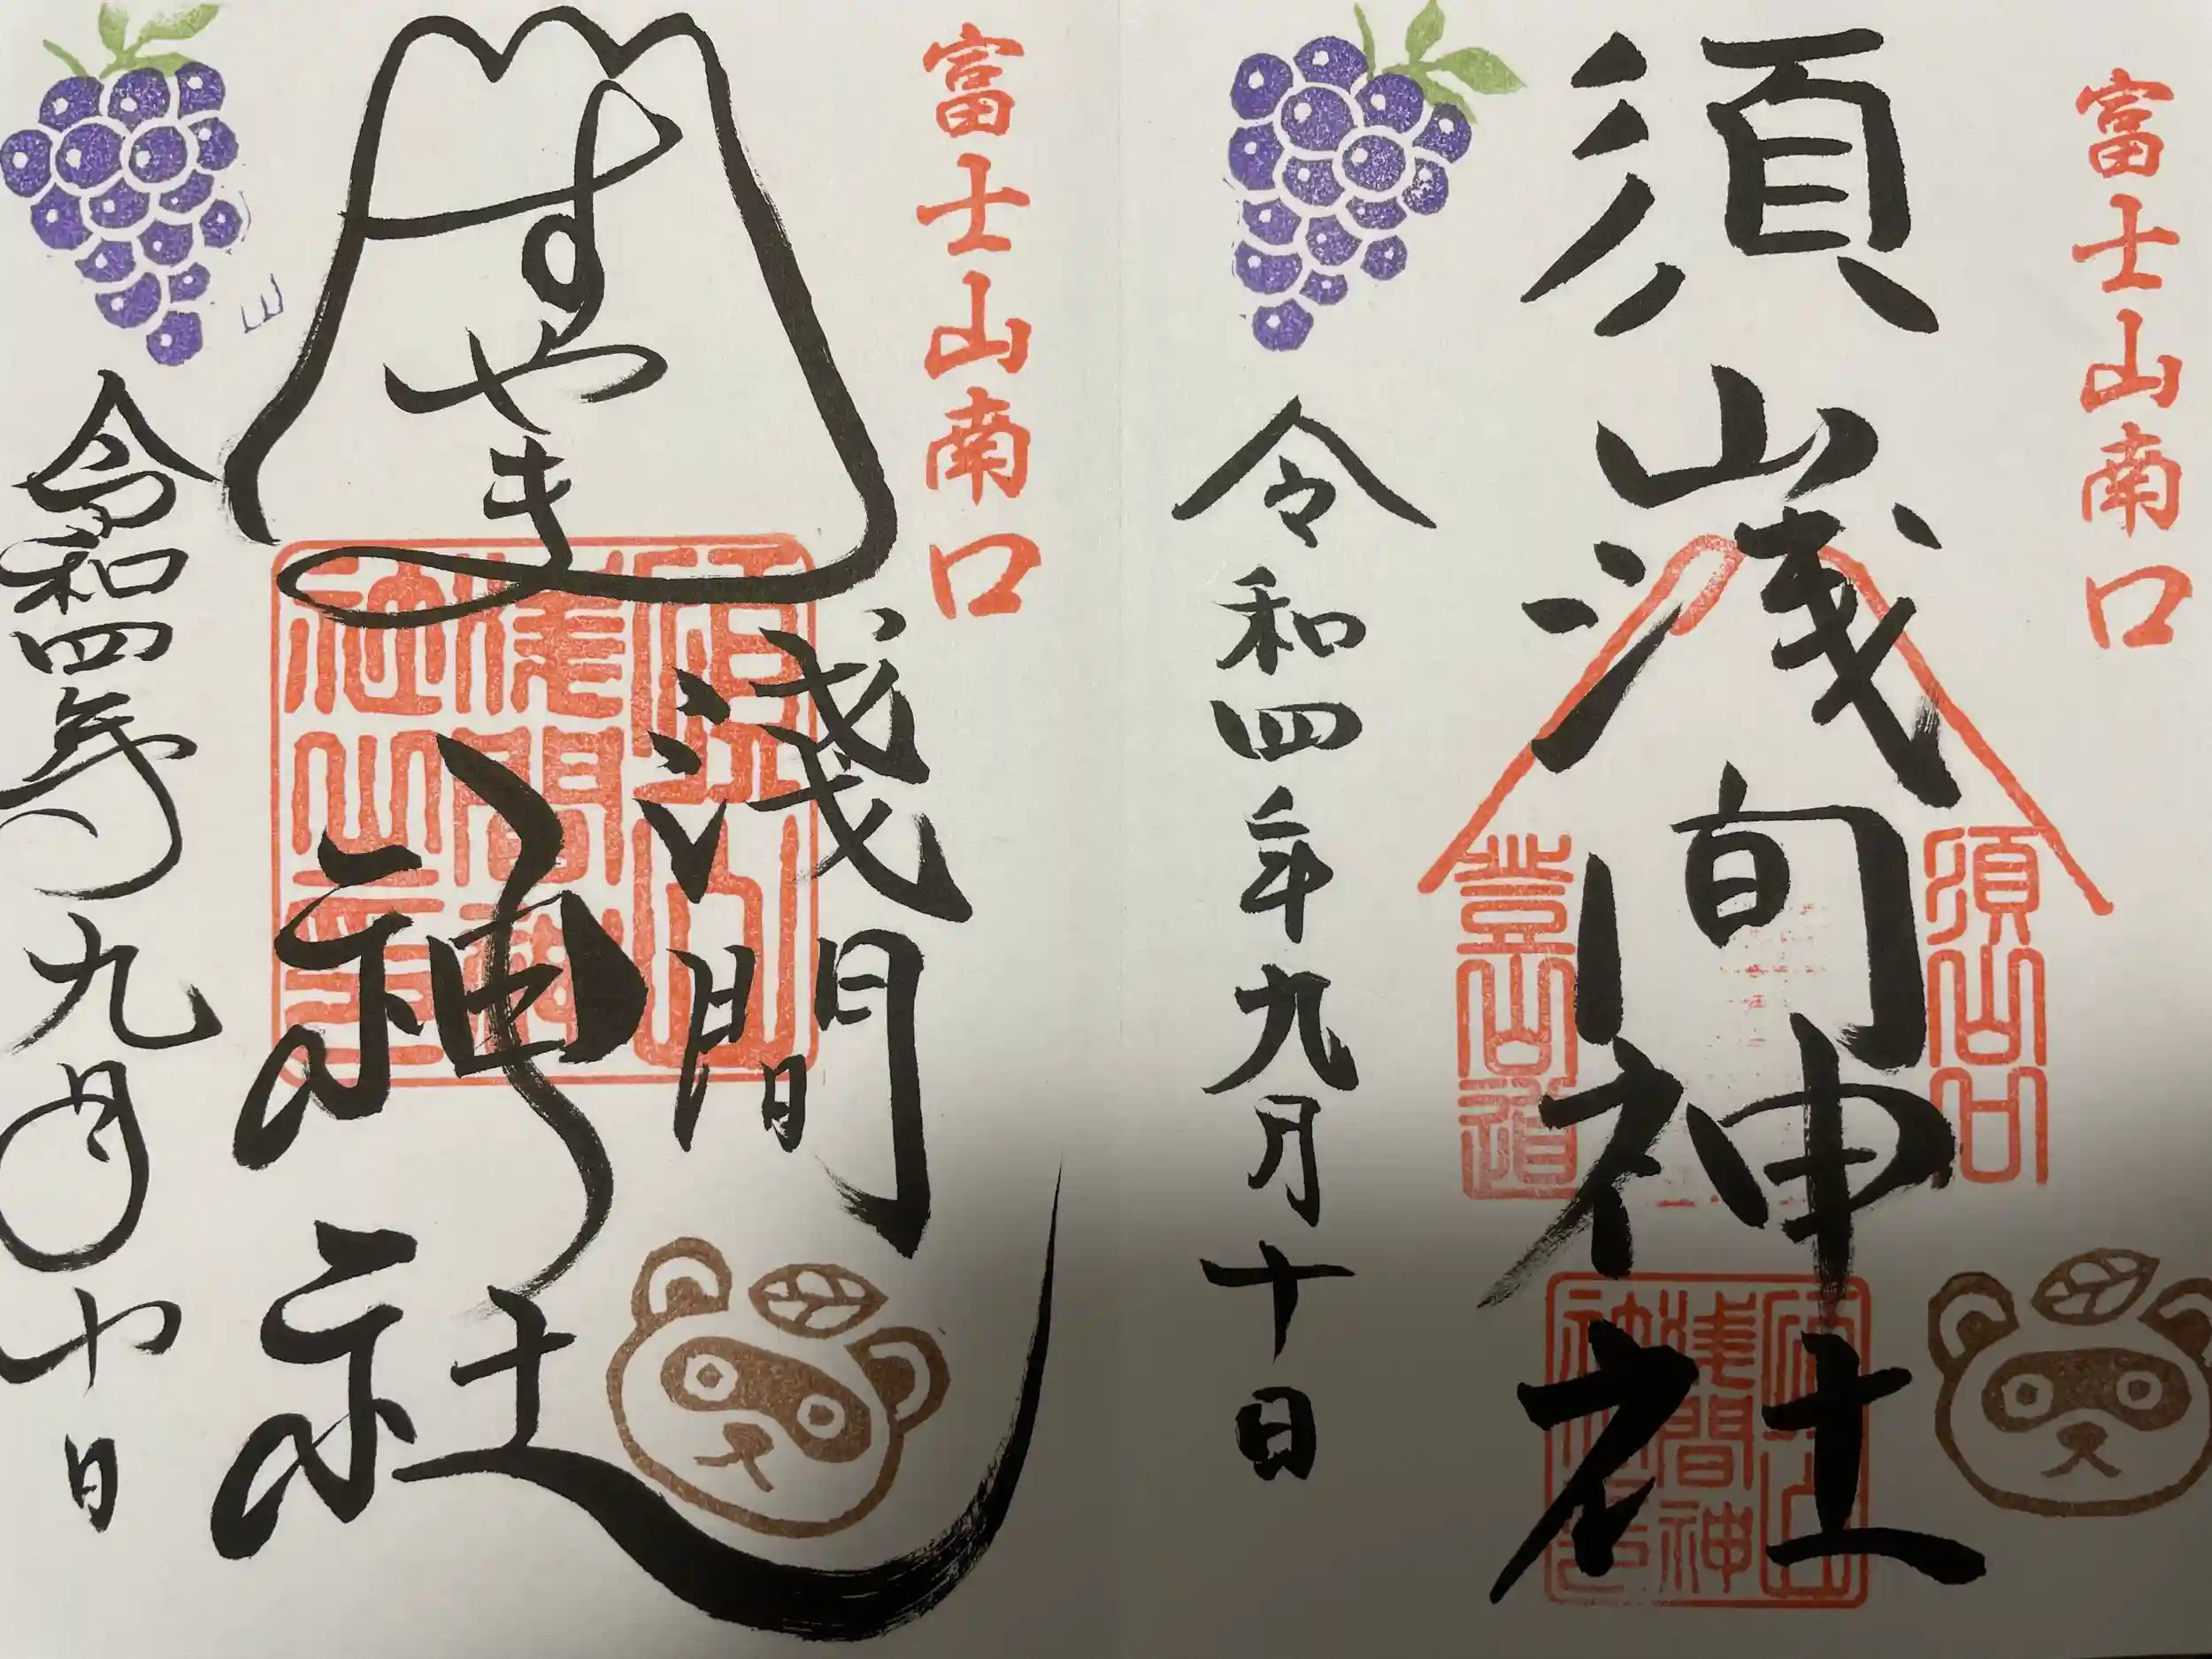 富士山南口
須山浅間神社
須山口
登山道
須山
浅間神
令和四年九月十日
富士山南口
すやま
浅間
神社
須山
浅間神
社之
令和四年九月十日